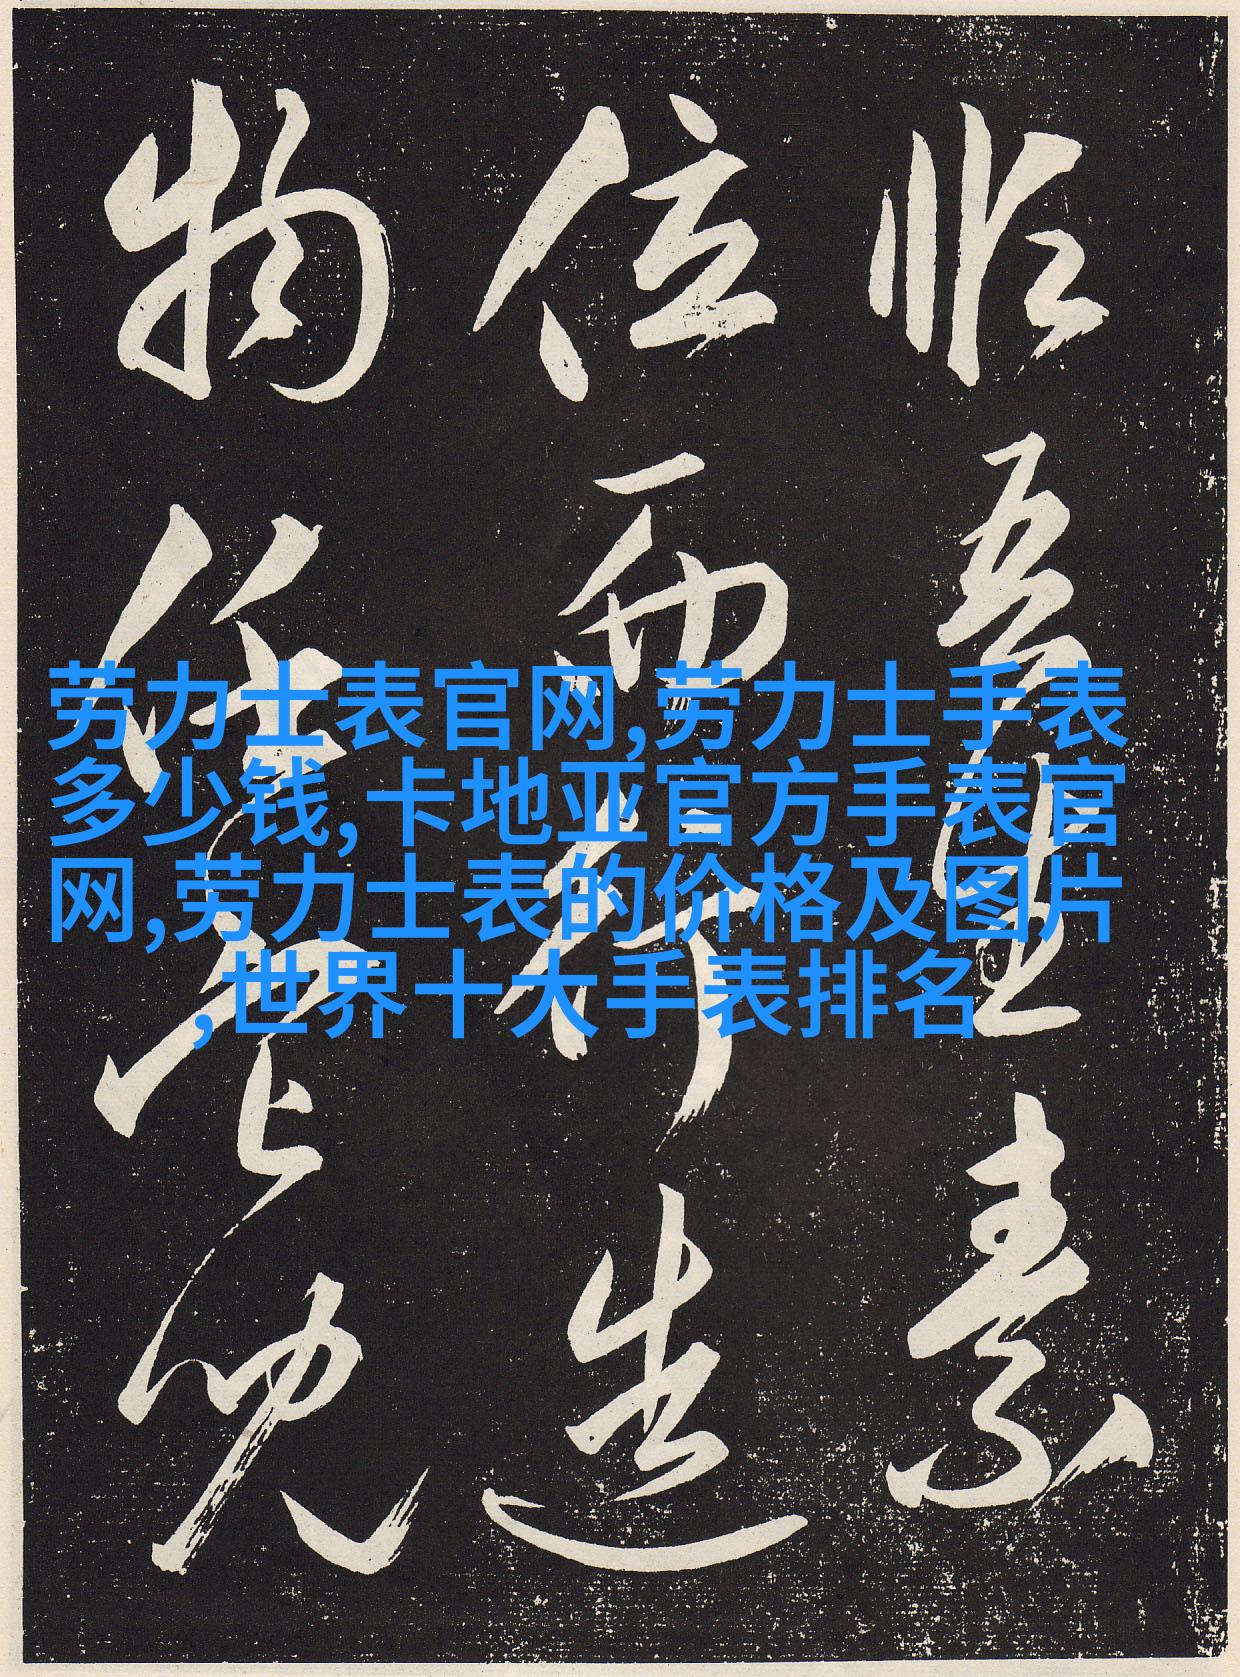 劳力士表官网,劳力士手表
多少钱, 卡地亚官方手表官
网,劳力士表的价格及图片
,世界十大手表排名
素
位而行造
物任